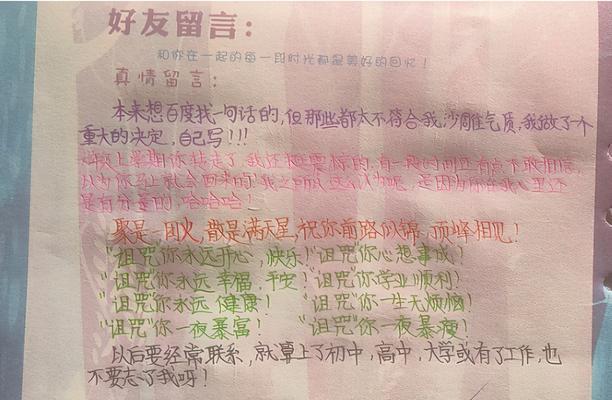 好友留言:
和你在一起的每一段时光都是美好的回忆!
真情留言:
本来想百度找一句话的,但那些都太不符合我沙雕气质,我做了个
重大的决定,自己写!!!
上学期你转走了,我还挺震惊的,有一段时间还有点不敢相信,
以为你马上就会回来的!我之所以这么认为呢,是因为你在我心里还
是有分量的,哈哈哈!
聚是一团火,散是满天星,祝你前路似锦,顶峰相见!
"诅咒"你永远开心,快乐!"诅咒"你心想事成!
"诅咒"你永远幸福,平安!"诅咒"你学业顺利!
"诅咒"你永远健康! "诅咒"你一生无烦恼!
"诅咒"你一夜暴富! "诅咒"你一夜暴瘦!
以后要经常联系,就算上了初中,高中,大学或有了工作,也
不要忘了我呀!